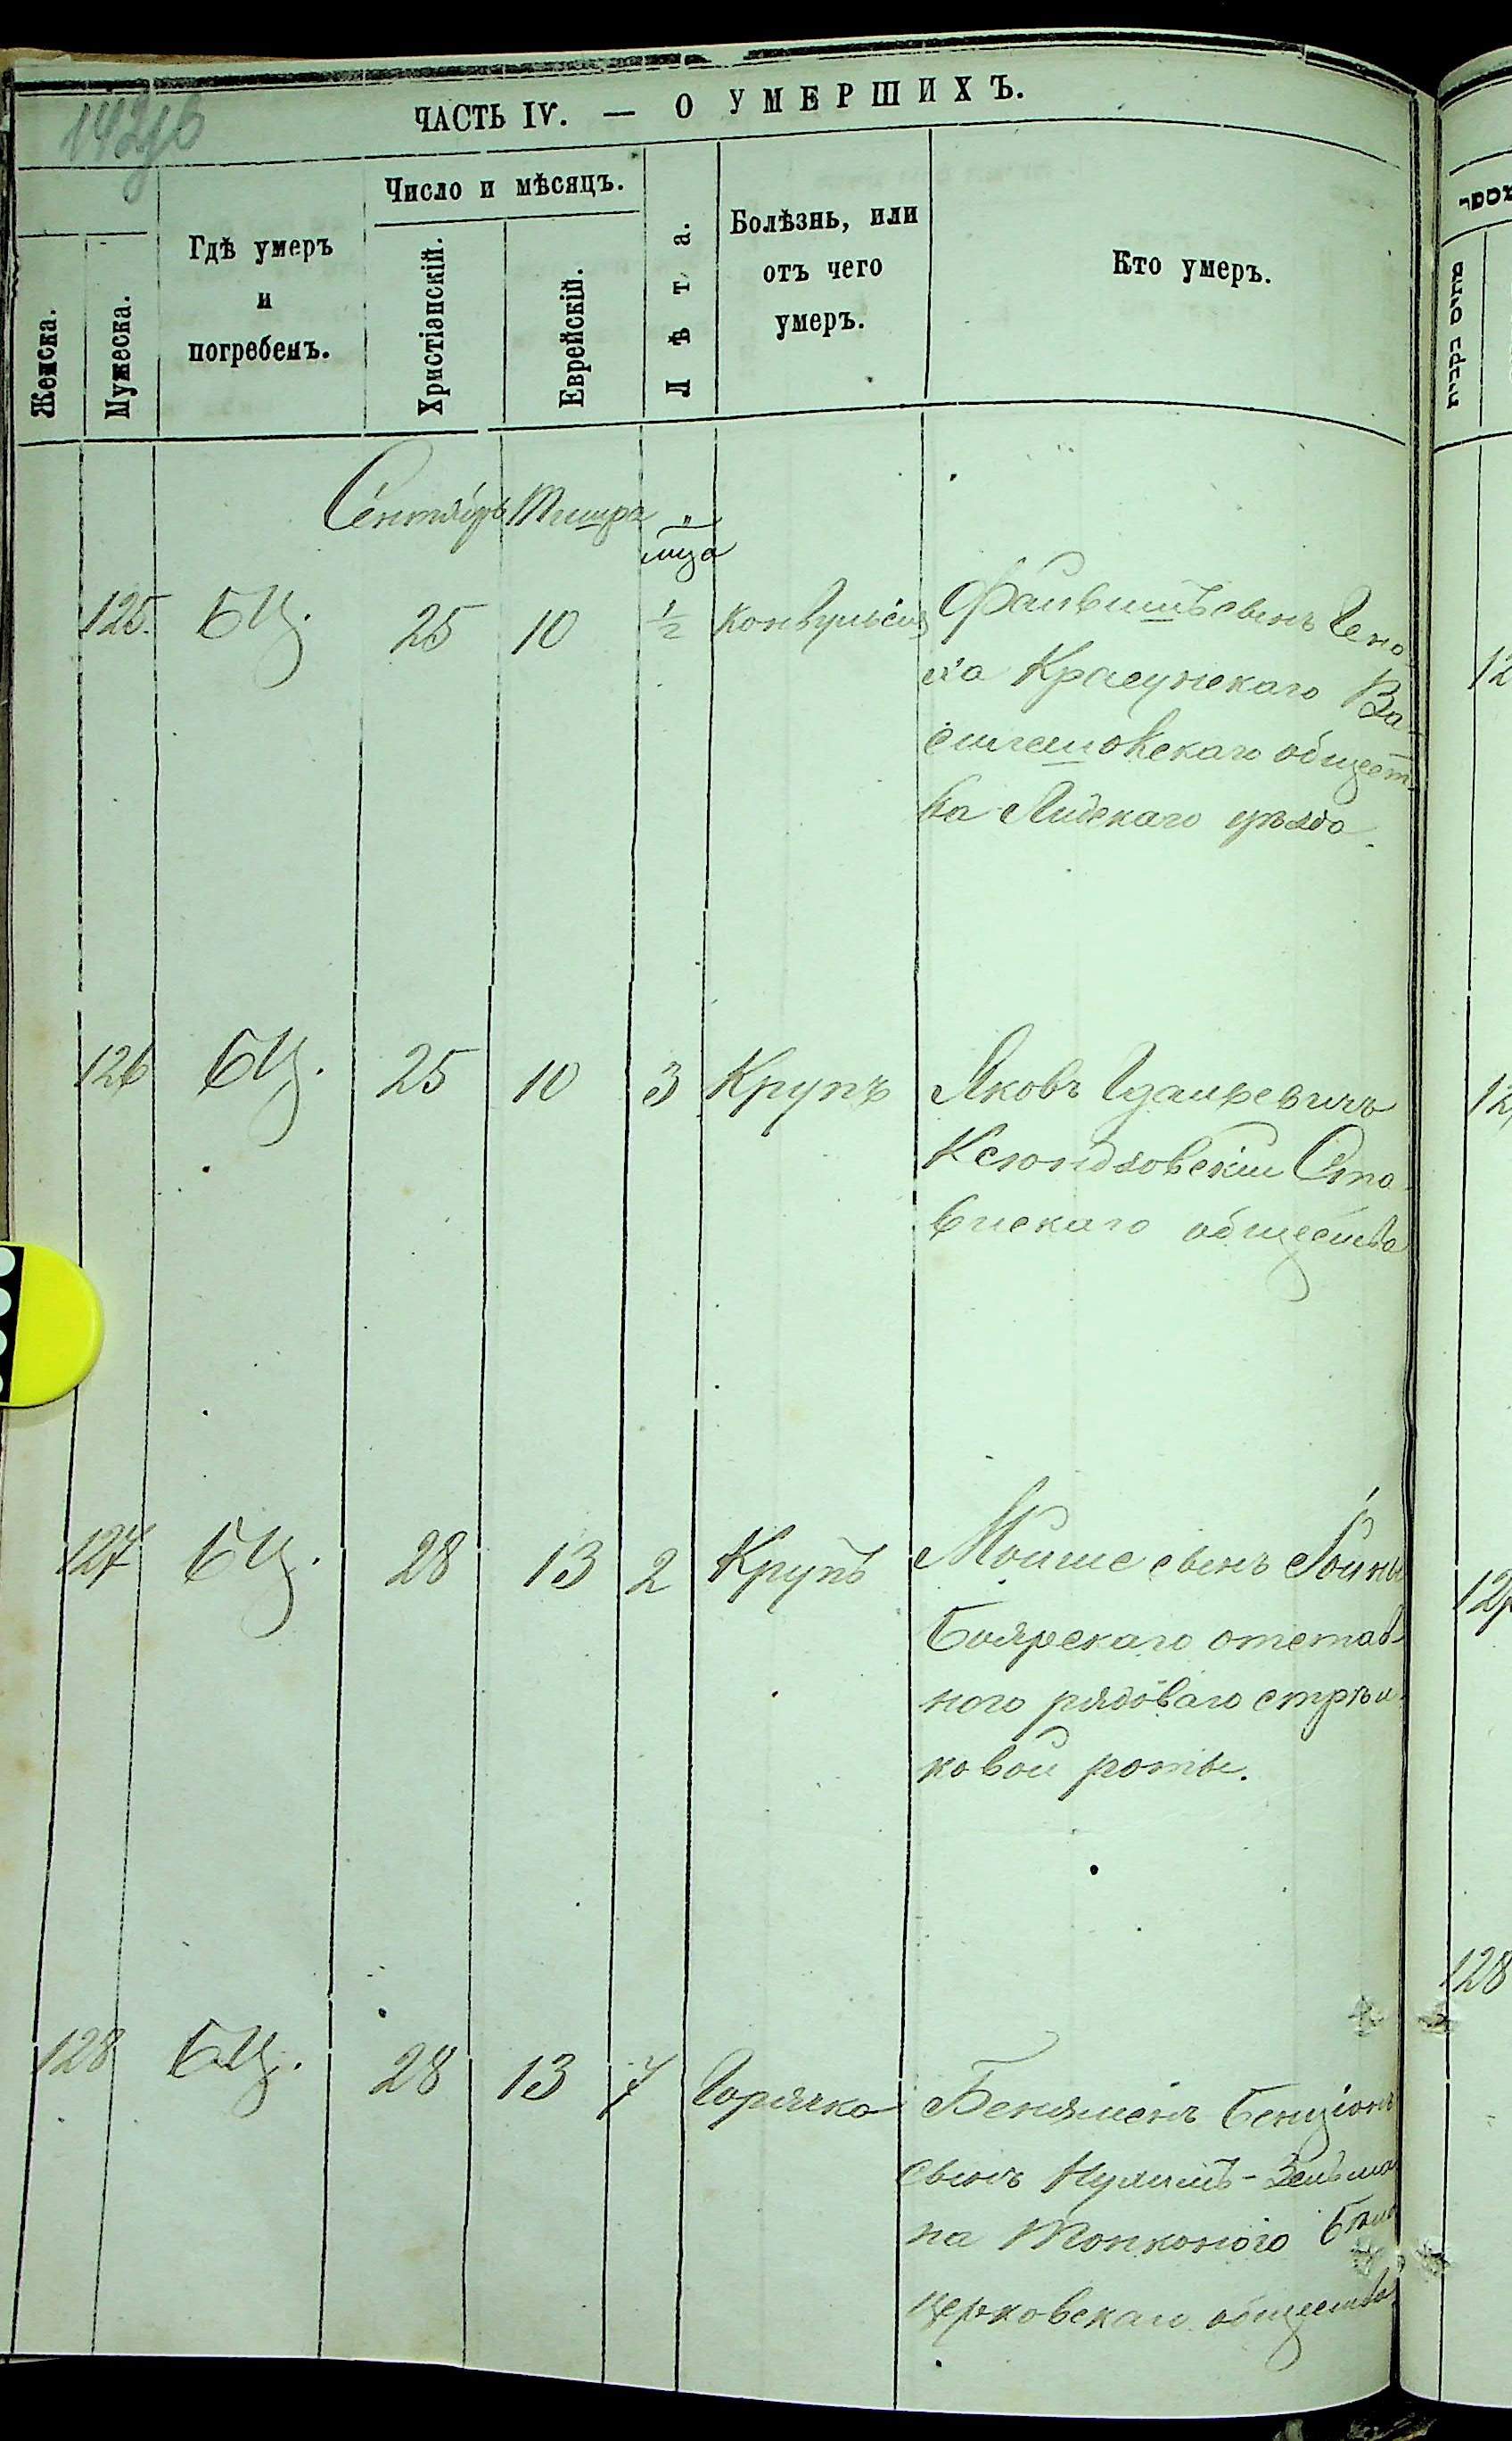 ЧАСТЬ IV. — О УМЕРШИХЪ.
Женска.
Мужеска.
Гдѣ умеръ
и
погребенъ.
Число и мѣсяцъ.
Христіанскій.
Еврейскій.
Лѣта.
Болѣзнь, или
отъ чего
умеръ.
Кто умеръ.
Сентябрь Тишри
125. БЦ. 25 10 ½ Конвульсія Файвишъ сынъ Гено-
ха Красунскаго Ва-
силишовскаго общест-
ва Лидскаго уѣзда.
126 БЦ. 25 10 3 Крупъ Яковъ
Ста-
вискаго общества
127 БЦ. 28 13 2 Крупъ Мойше сынъ
Боярскаго отстав-
ного рядоваго стрѣл-
ковой роты.
128 БЦ. 28 13 7 Горячка Беніаминъ Бенціонъ
сынъ Зельма-
на Бѣло
церковскаго общества